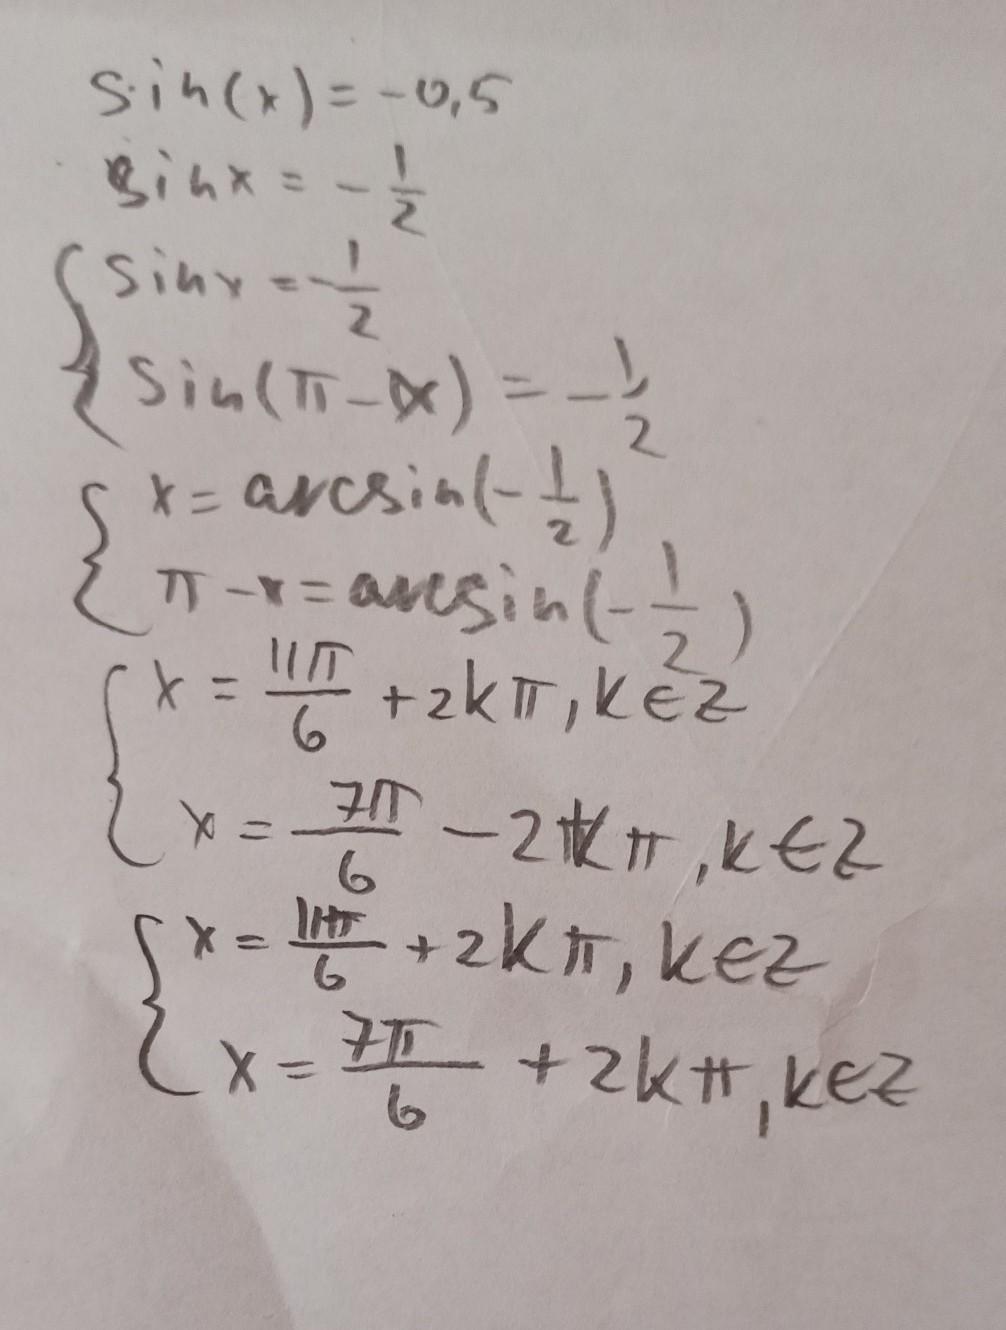 sin(x) = -0,5
sinx = - 1/2
{ sinx = - 1/2
sin(π-x) = - 1/2
{ x = arcsin(- 1/2)
π - x = arcsin(- 1/2)
{ x = 11π/6 + 2kπ, k∈Z
x = 7π/6 - 2kπ, k∈Z
{ x = 11π/6 + 2kπ, k∈Z
x = 7π/6 + 2kπ, k∈Z